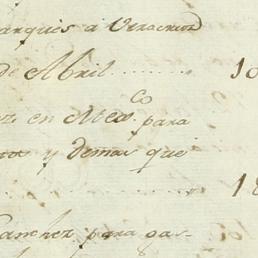 arques a Veracruz
de Abril ........ 10
en Mexco para
y demas que
........ 18
Sanchez para gas-